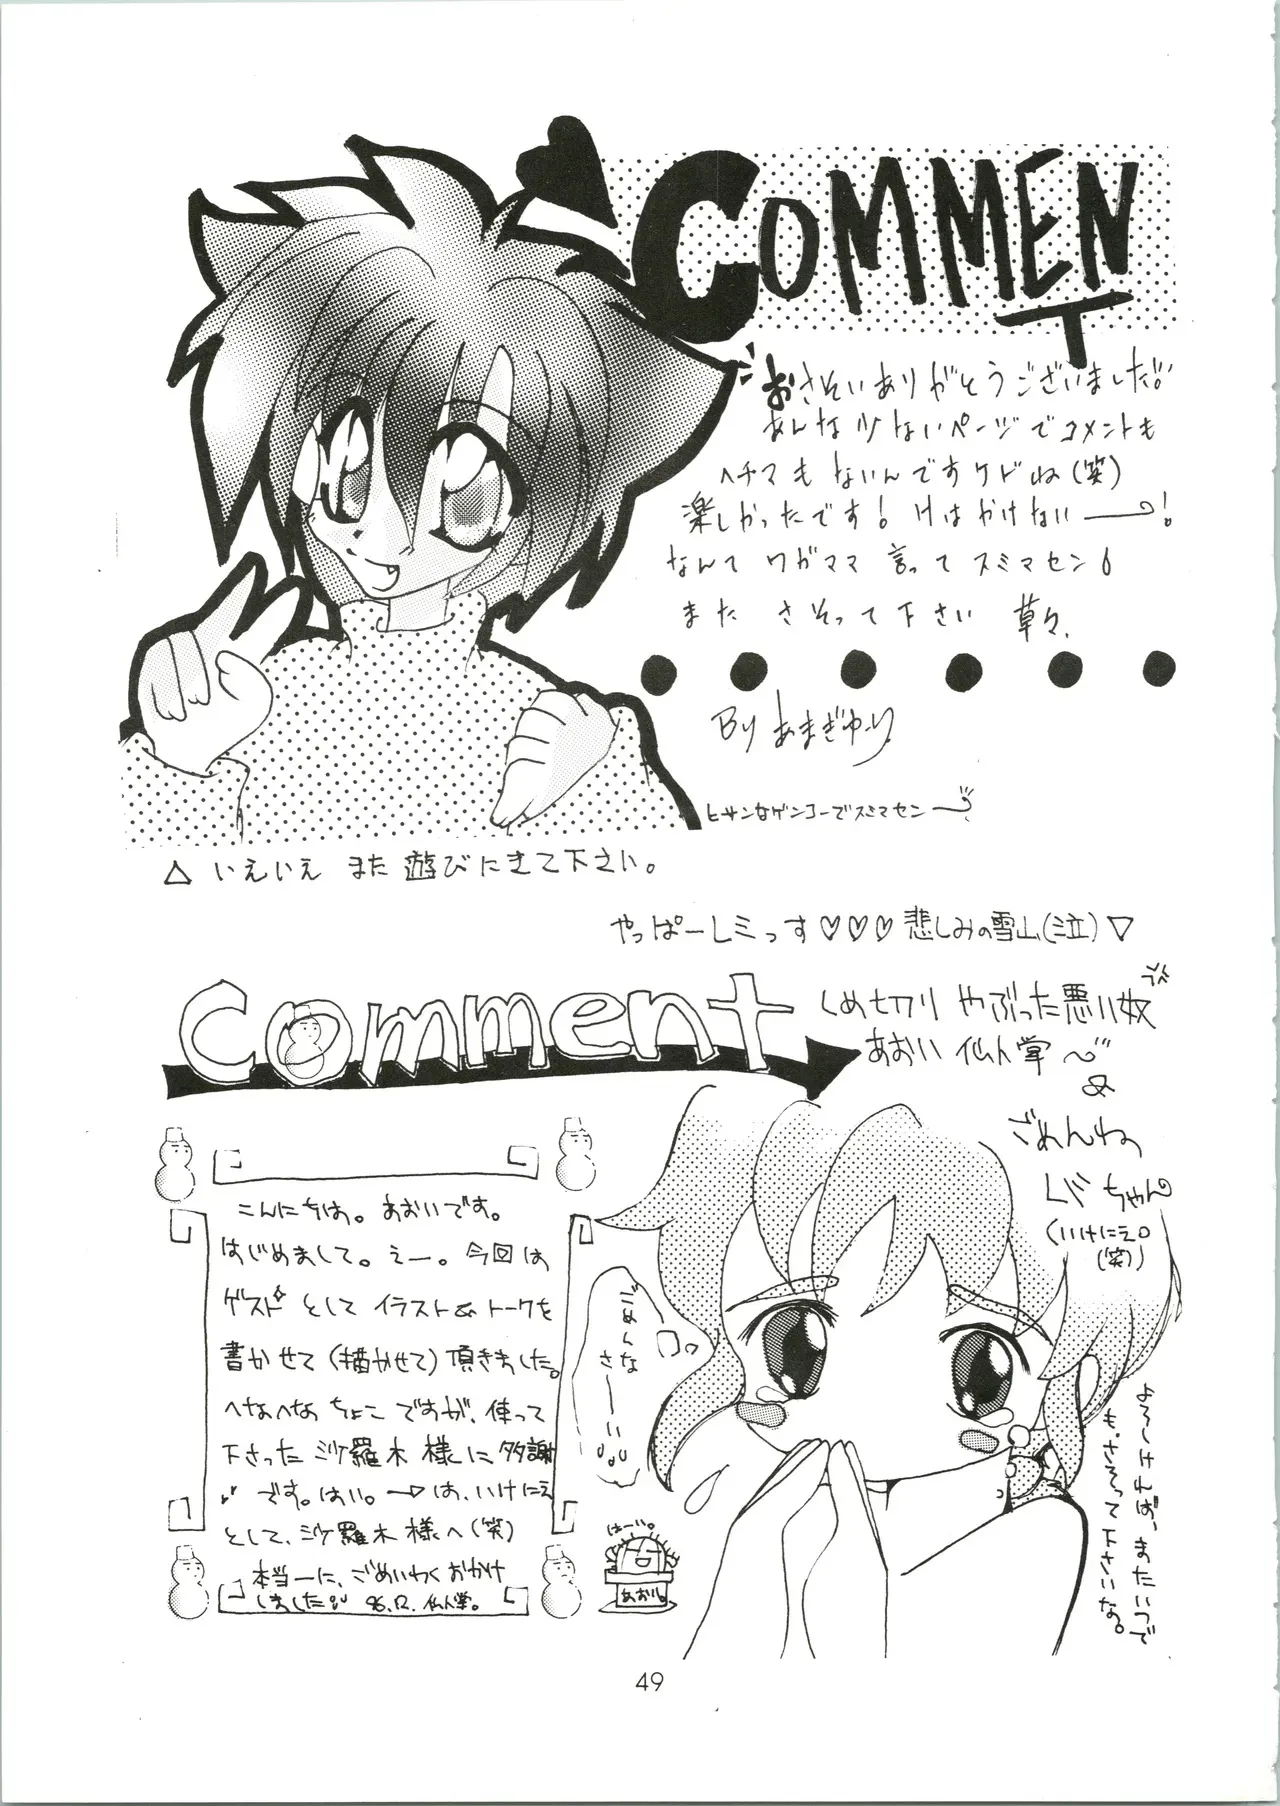 COMMENT
おさそいありがとうございました。
あんな少ないページでコメントも
ヘチマもないんですケドね(笑)
楽しかったです!
なんてワガママ言ってスミマセン
また さそって下さい 草々.
By あまぎゆり
ヒサンなゲンコーでスミマセン
△ いえいえ また遊びにきて下さい。
やっぱーしミっす♡♡♡悲しみの雪山(泣)▽
Comment
〆切りやぶった悪い奴
あおい仙人掌
ごめんね
(いけにえ。
(笑))
こんにちは。あおいです。
はじめまして。えー。今回は
ゲストとしてイラスト&トークを
書かせて(描かせて)頂きました。
へなへなちょこですが、使って
下さった沙羅木様に多謝
です。はい。→は、いけにえ
として、沙羅木様へ(笑)
本当ーに、ごめいわくおかけ
しました 96.12. 仙人掌。
ごめんな
さーい
はーい。
あおい。
よろしければ、またいつで
も、さそって下さいな。
49